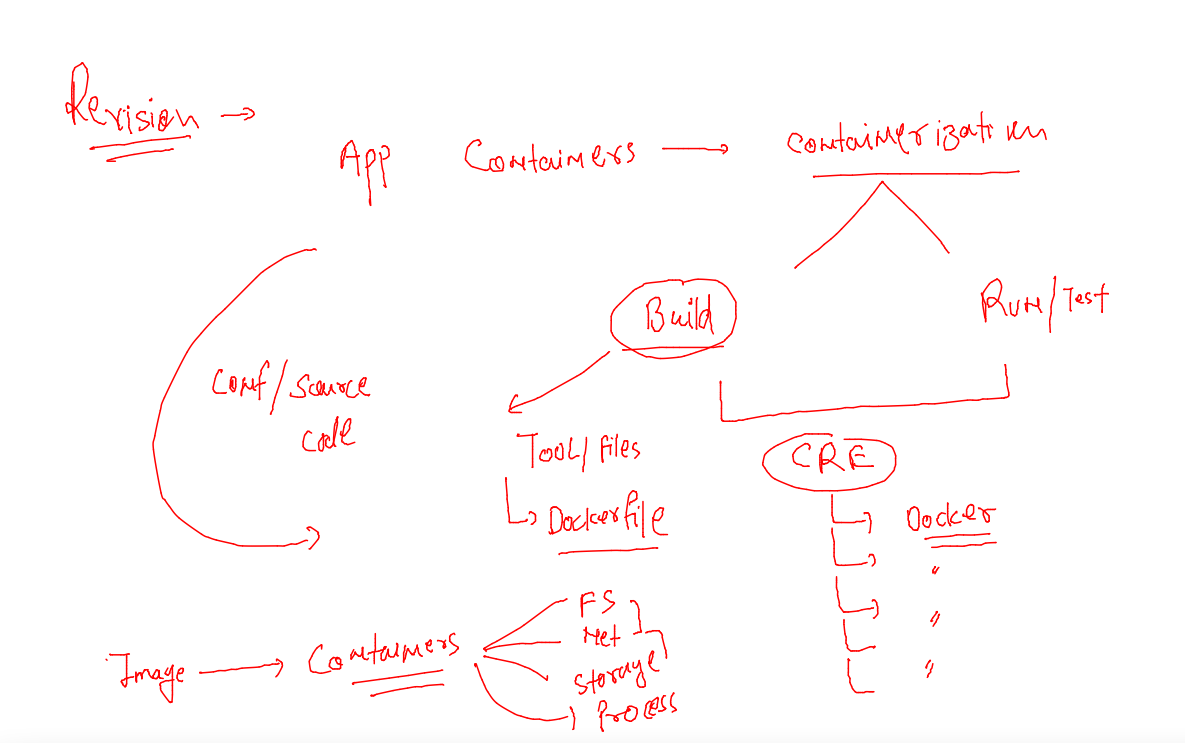 Revision →
App Containers → Containerization
Build
Run/Test
Conf/source
code
Tool/files
CRE
Dockerfile
Docker
"
"
"
Image → Containers
FS
Net
Storage
Process